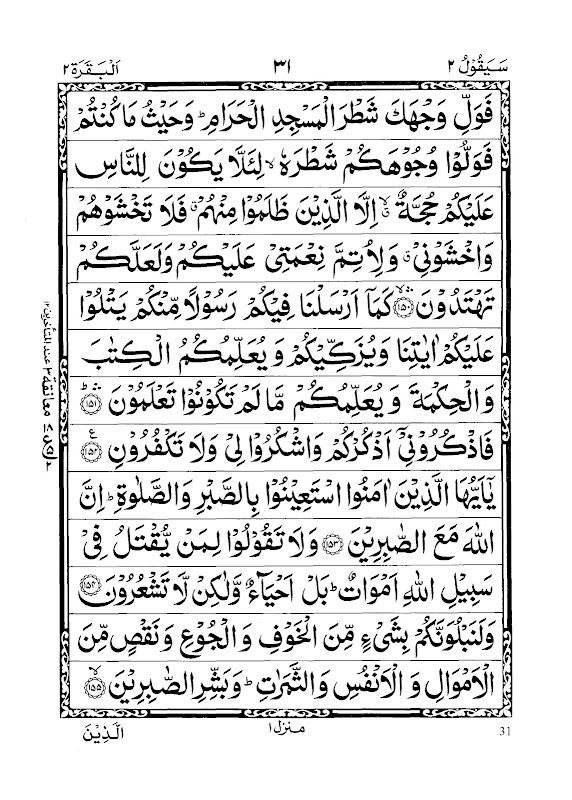 سَيَقُوۡلُ ٢ ٣١ اَلۡبَقَرَة ٢
فَوَلِّ وَجۡهَكَ شَطۡرَ الۡمَسۡجِدِ الۡحَرَامِ ؕ وَحَيۡثُ مَا كُنۡتُمۡ
فَوَلُّوۡا وُجُوۡهَكُمۡ شَطۡرَهٗ ۙ لِئَلَّا يَكُوۡنَ لِلنَّاسِ
عَلَيۡكُمۡ حُجَّةٌ ۙ اِلَّا الَّذِيۡنَ ظَلَمُوۡا مِنۡهُمۡ ۗ فَلَا تَخۡشَوۡهُمۡ
وَاخۡشَوۡنِىۡ ۗ وَلِاُتِمَّ نِعۡمَتِىۡ عَلَيۡكُمۡ وَلَعَلَّكُمۡ
تَهۡتَدُوۡنَ ۙ‏﴿۱۵۰﴾ كَمَآ اَرۡسَلۡنَا فِيۡکُمۡ رَسُوۡلًا مِّنۡکُمۡ يَتۡلُوۡا
عَلَيۡكُمۡ اٰيٰتِنَا وَيُزَكِّيۡكُمۡ وَيُعَلِّمُکُمُ الۡكِتٰبَ
وَالۡحِکۡمَةَ وَيُعَلِّمُكُمۡ مَّا لَمۡ تَكُوۡنُوۡا تَعۡلَمُوۡنَ ؕ‏﴿۱۵۱﴾
فَاذۡكُرُوۡنِىۡٓ اَذۡكُرۡكُمۡ وَاشۡکُرُوۡا لِىۡ وَلَا تَكۡفُرُوۡنِ ﴿۱۵۲﴾ ع
يٰٓاَيُّهَا الَّذِيۡنَ اٰمَنُوا اسۡتَعِيۡنُوۡا بِالصَّبۡرِ وَالصَّلٰوةِ ؕ اِنَّ
اللّٰهَ مَعَ الصّٰبِرِيۡنَ ﴿۱۵۳﴾ وَلَا تَقُوۡلُوۡا لِمَنۡ يُّقۡتَلُ فِىۡ
سَبِيۡلِ اللّٰهِ اَمۡوَاتٌ ؕ بَلۡ اَحۡيَآءٌ وَّلٰـكِنۡ لَّا تَشۡعُرُوۡنَ ﴿۱۵۴﴾
وَلَنَبۡلُوَنَّكُمۡ بِشَىۡءٍ مِّنَ الۡخَـوۡفِ وَالۡجُـوۡعِ وَنَقۡصٍ مِّنَ
الۡاَمۡوَالِ وَالۡاَنۡفُسِ وَالثَّمَرٰتِ ؕ وَبَشِّرِ الصّٰبِرِيۡنَ ۙ‏﴿۱۵۵﴾
31 منزل ١ اَلَّذِيۡنَ